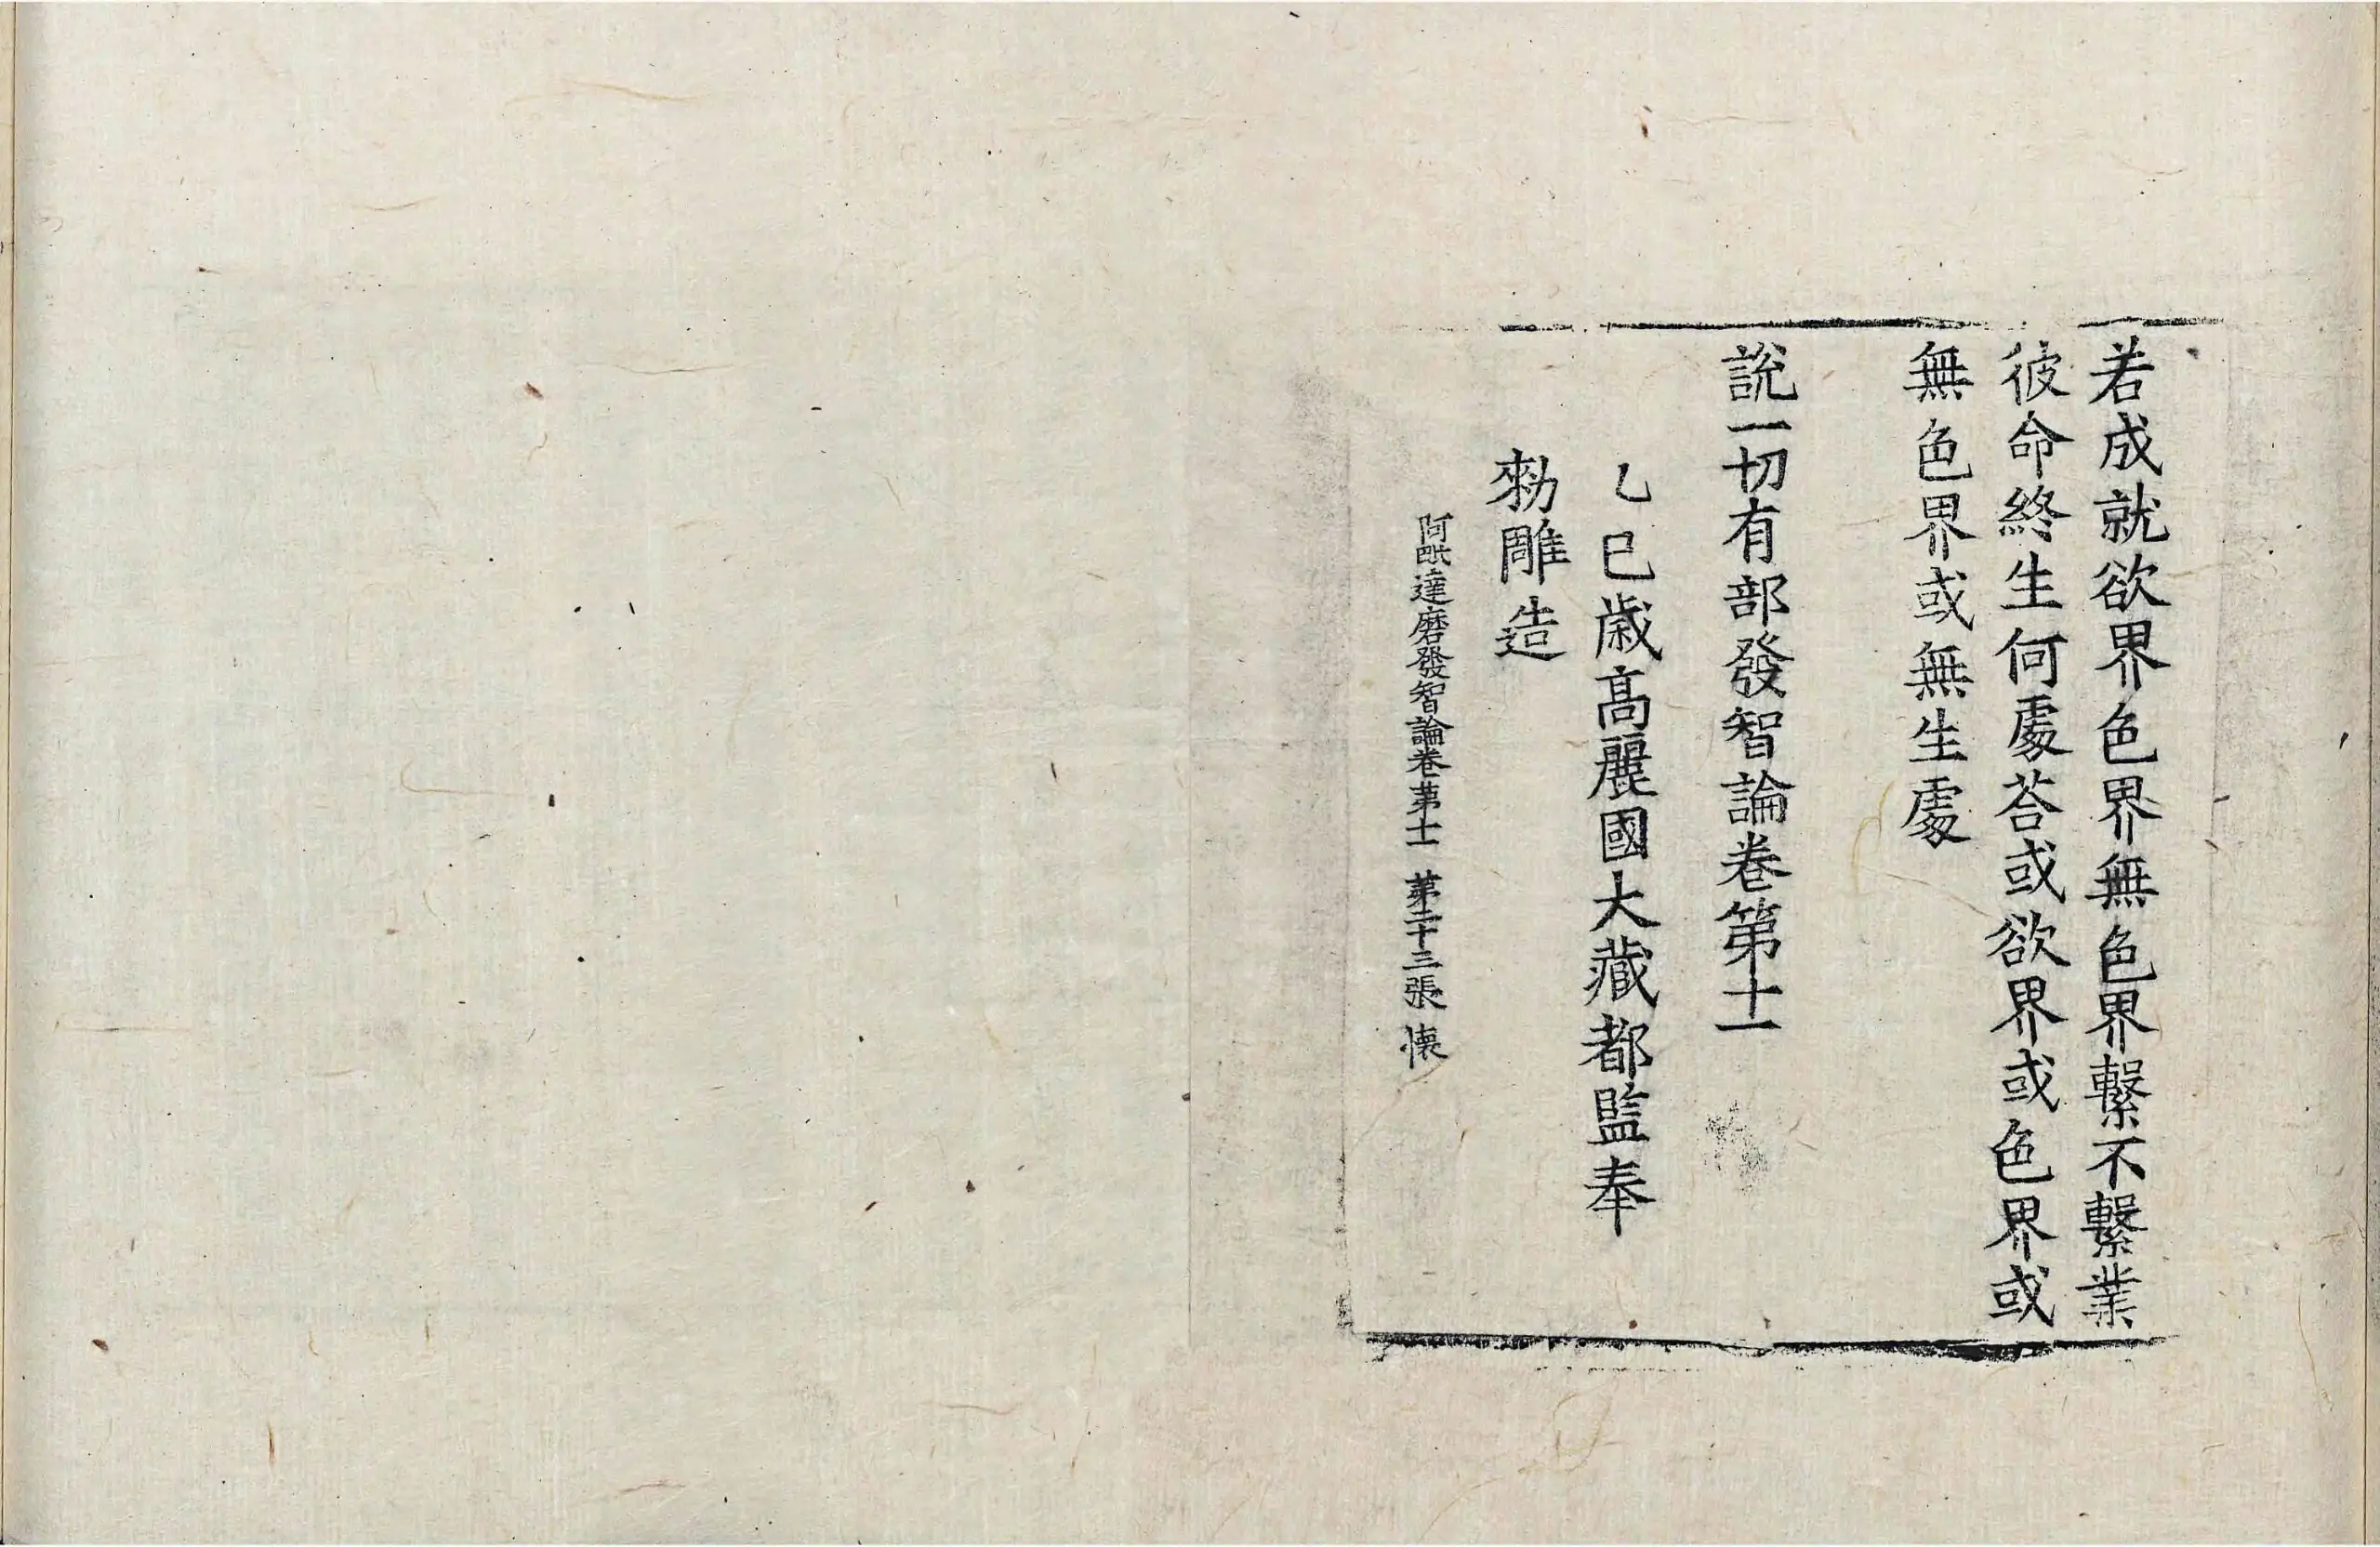 若成就欲界色界無色界繫不繫業
彼命終生何處荅或欲界或色界或
無色界或無生處
說一切有部發智論卷第十一
乙巳歲高麗國大藏都監奉
勑雕造
阿毗達磨發智論卷第十一 第二十三張 懐